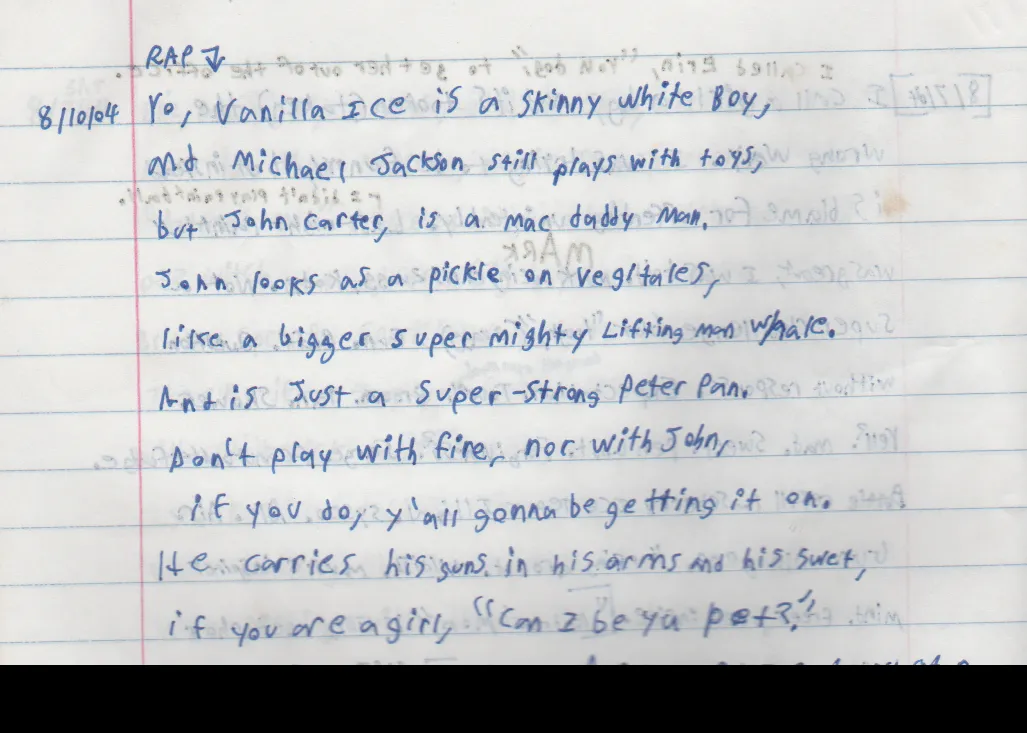 RAP ↓
8/10/04 Yo, Vanilla Ice is a skinny white Boy,
and Michael Jackson still plays with toys,
but John Carter, is a mac daddy man.
John looks as a pickle on vegitales,
like a bigger super mighty Lifting man whale.
And is Just a super-strong Peter Pan.
Don't play with fire, nor with John,
if you do, y'all gonna be getting it on.
He carries his guns in his arms and his swet,
if you are a girl, "Can I be ya pet?",